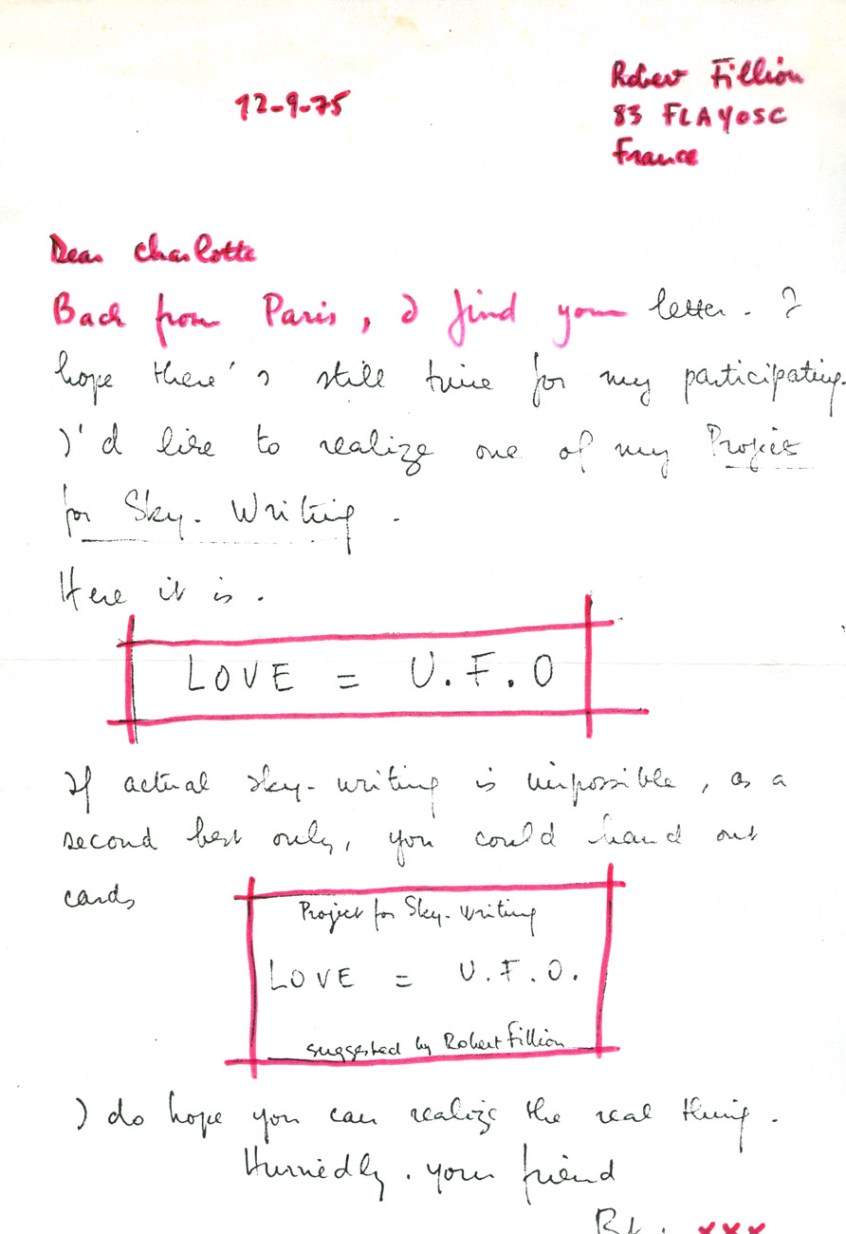 12-9-75
Robert Fillion
83 FLAYOSC
France
Dear Charlotte
Back from Paris, I find your letter. I
hope there's still time for my participating.
I'd like to realize one of my Projects
for Sky-Writing.
Here it is.
LOVE = U.F.O
If actual sky-writing is impossible, as a
second best only, you could hand out
cards
Project for Sky-Writing
LOVE = U.F.O.
suggested by Robert Fillion
I do hope you can realize the real thing.
Hurriedly. your friend
xxx